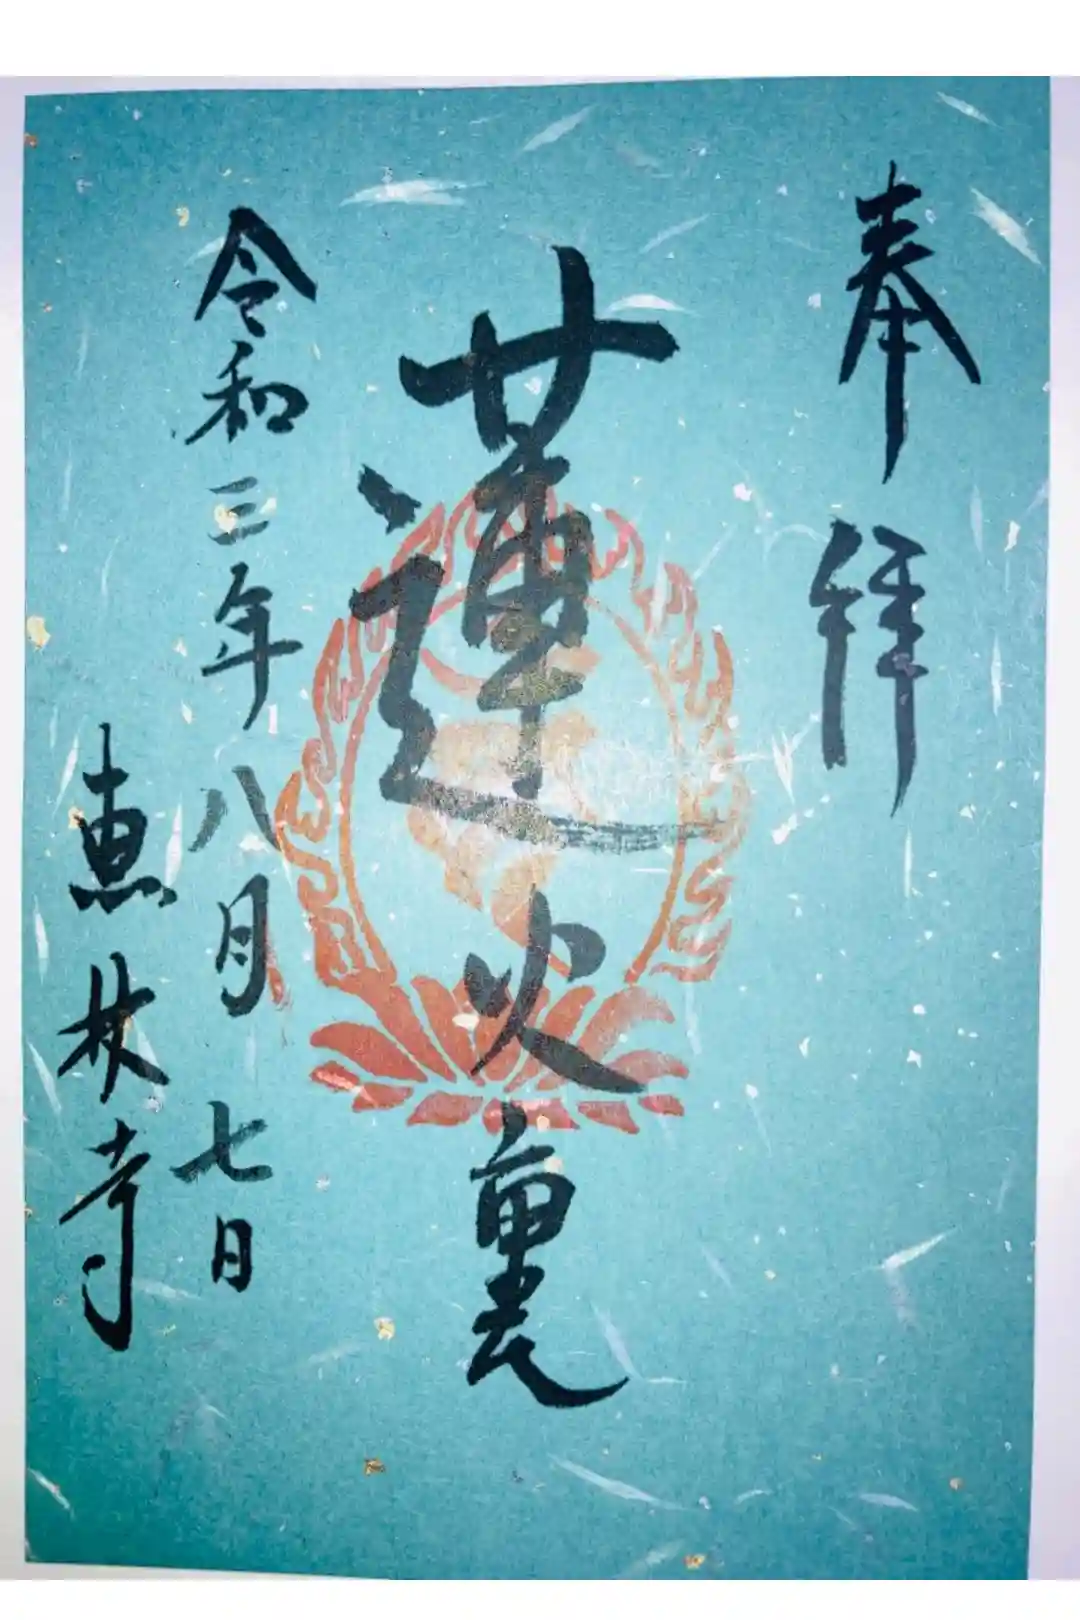 奉拝
蓮火裏
令和三年八月七日
恵林寺